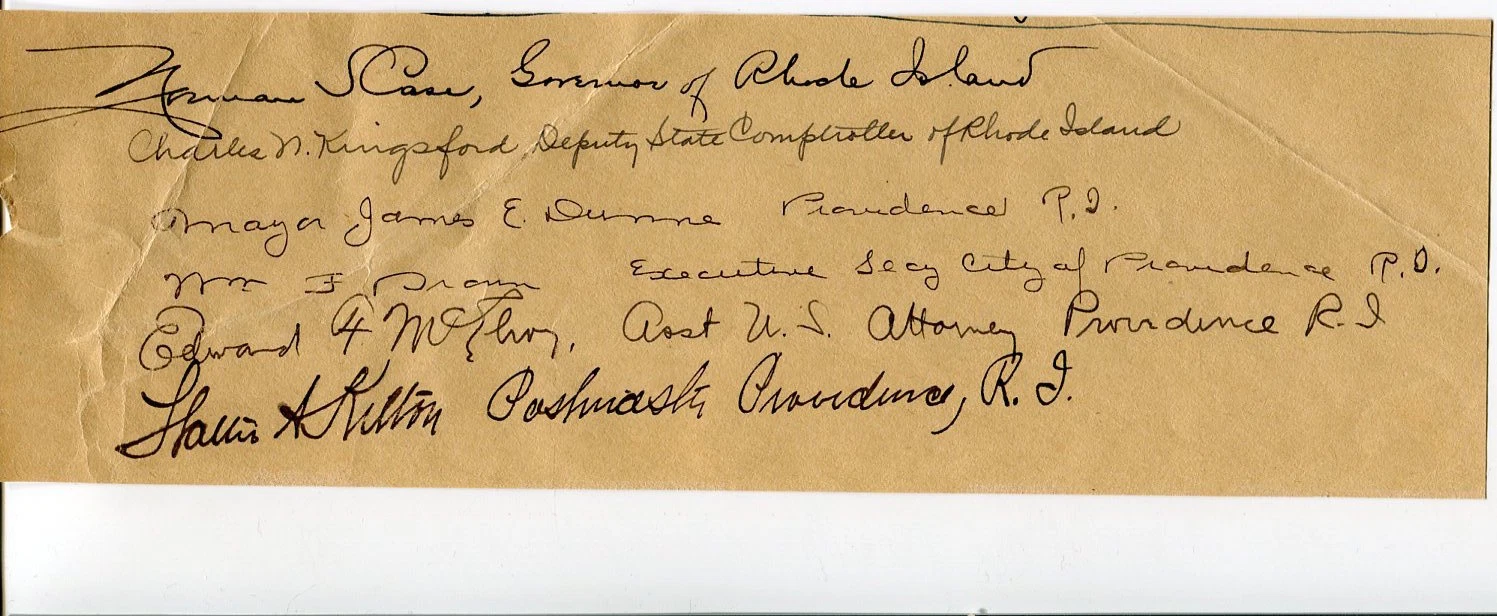 Norman S Case, Governor of Rhode Island
Charles N. Kingsford, Deputy State Comptroller of Rhode Island
Mayor James E. Dunne Providence R.I.
Wm F Executive Secy City of Providence R.I.
Edward F McElroy, Asst U.S. Attorney Providence R.I
A Kelton Postmaster Providence, R.I.